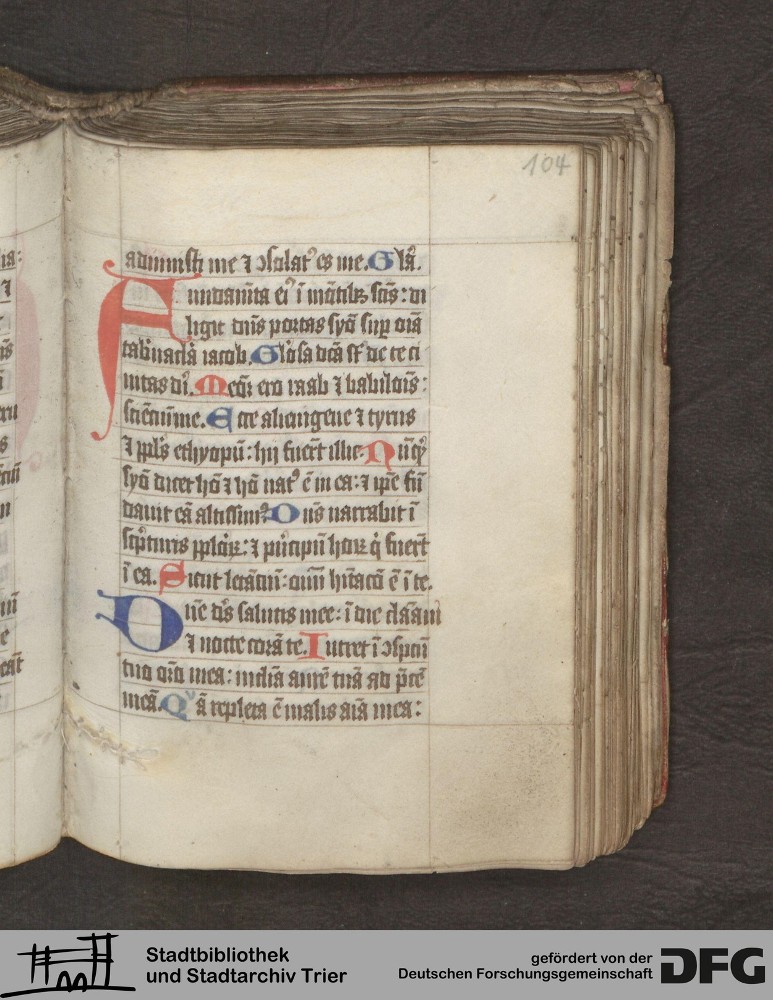 104
adiuuisti me ⁊ ꝯsolatꝰ es me. Gl̄a.
Fundam̄ta eiꝰ ī mōtibꝫ scīs: di
ligit dn̄s portas syō suꝑ oīa
tab̄nacl̄a iacob. Gl̄osa dc̄a sr̄ de te ci
uitas di. Meōꝝ ero raab ⁊ babilōis:
sciēciū me. Ecce alienigene ⁊ tyrus
⁊ ppl̄s ethyopū: hii fuer̄t illic. Nūq̇ͥ
syō dicet hō ⁊ hō natꝰ ē in ea: ⁊ ip̄e fū
dauit eā altissimꝰ. Dn̄s narrabit ī
sc̄pturis pplōꝝ: ⁊ pͥncipū hoꝝ q̇ fuer̄t
ī ea. Sicut letāciū: oīm hītacō ē ī te.
Dn̄e ds̄ salutis mee: ī die clāui
⁊ nocte corā te. Intret ī ꝯspcū
tuo orō mea: inclīa aurē tuā ad p̄cē
meā. Qͥā repleta ē malis aīa mea:
Stadtbibliothek
und Stadtarchiv Trier
gefördert von der
Deutschen Forschungsgemeinschaft
DFG